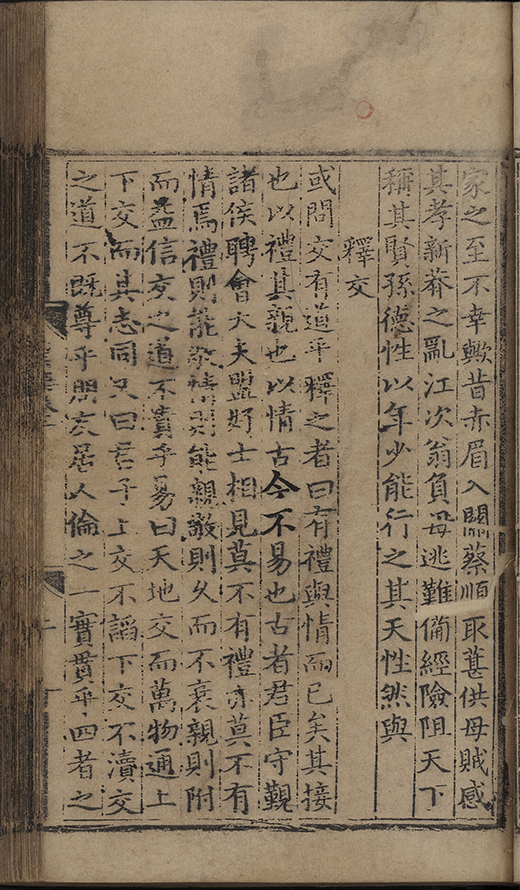 家之至不幸歟昔赤眉入關蔡順取葚供母賊感
其孝新莽之亂江次翁負母逃難備經險阻天下
稱其賢孫德性以年少能行之其天性然與
釋交
或問交有道乎釋之者曰有禮與情而已矣其接
也以禮其親也以情古今不易也古者君臣守覲
諸侯聘會大夫盟好士相見莫不有禮亦莫不有
情焉禮則能敬情則能親敬則久而不衰親則附
而益信交之道不貴乎易曰天地交而萬物通上
下交而其志同又曰君子上交不謟下交不瀆交
之道不既尊乎朋友居人倫之一實貫乎四者之